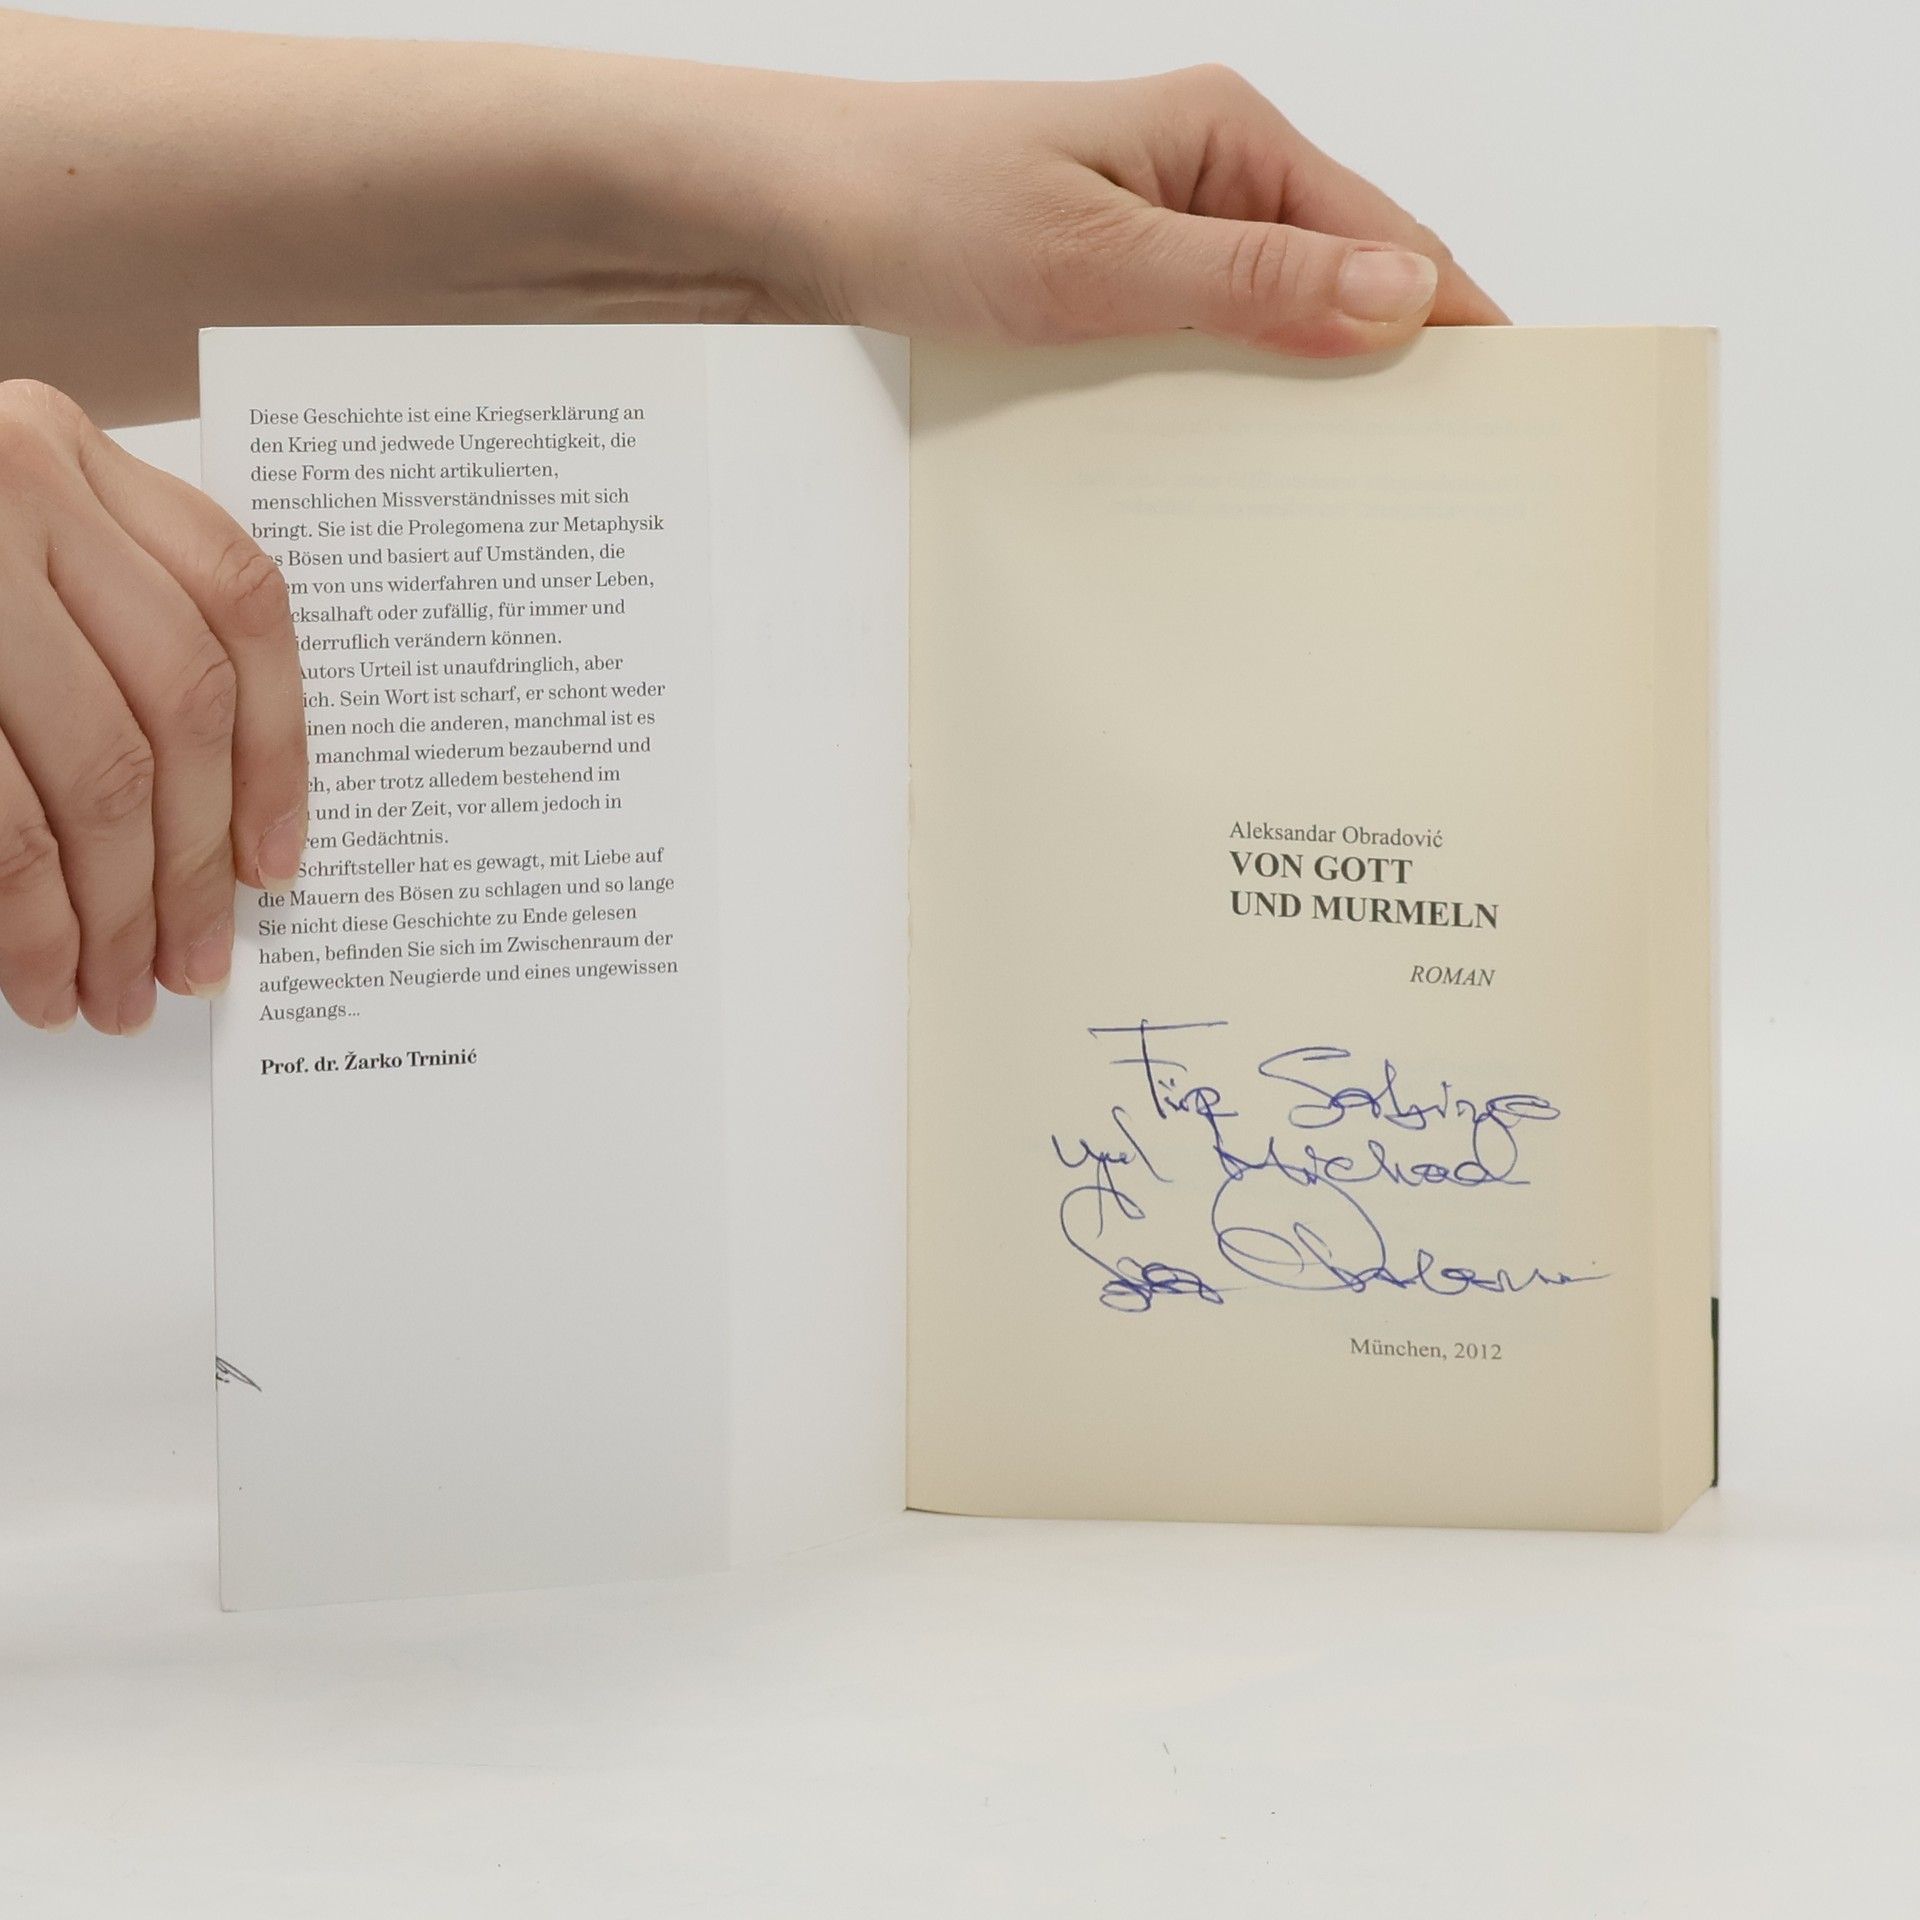 Diese Geschichte ist eine Kriegserklärung an
den Krieg und jedwede Ungerechtigkeit, die
diese Form des nicht artikulierten,
menschlichen Missverständnisses mit sich
bringt. Sie ist die Prolegomena zur Metaphysik
Bösen und basiert auf Umständen, die
von uns widerfahren und unser Leben,
oder zufällig, für immer und
verändern können.
Urteil ist unaufdringlich, aber
Sein Wort ist scharf, er schont weder
noch die anderen, manchmal ist es
manchmal wiederum bezaubernd und
aber trotz alledem bestehend im
und in der Zeit, vor allem jedoch in
Gedächtnis.
Schriftsteller hat es gewagt, mit Liebe auf
die Mauern des Bösen zu schlagen und so lange
Sie nicht diese Geschichte zu Ende gelesen
haben, befinden Sie sich im Zwischenraum der
aufgeweckten Neugierde und eines ungewissen
Ausgangs...
Prof. dr. Žarko Trninić
Aleksandar Obradović
VON GOTT
UND MURMELN
ROMAN
Für Sabina
und Michael
München, 2012